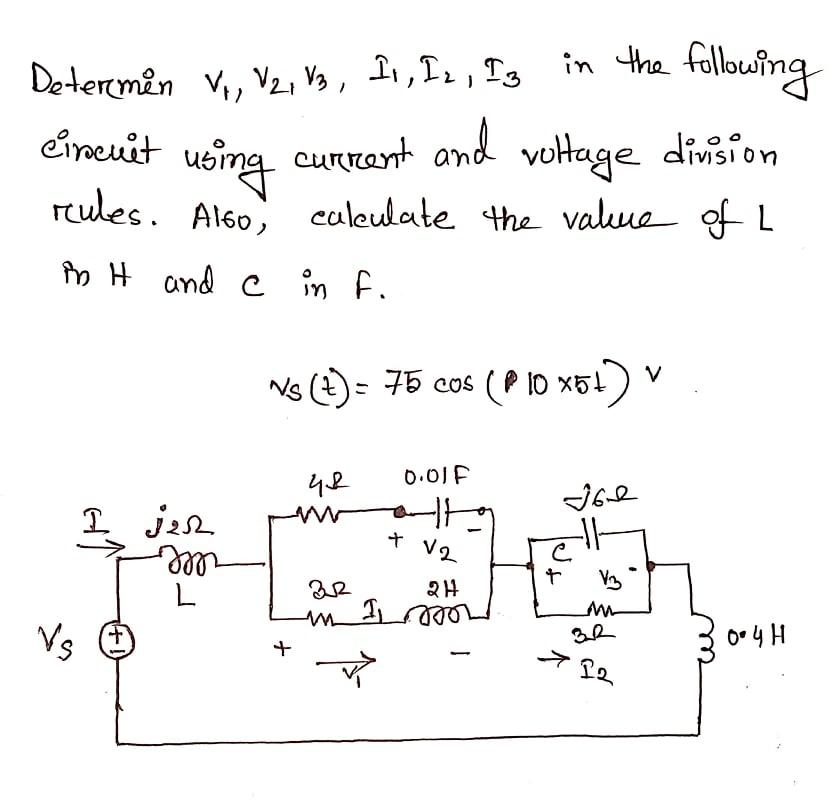 Determin V1, V2, V3, I1, I2, I3 in the following
circuit using current and voltage division
rules. Also, calculate the value of L
in H and C in F.
Vs(t) = 75 cos (10 x5t) V
4Ω 0.01F
-j6Ω
I j2Ω
+ V2 -
C
L
3Ω 2H
+ V3 -
I1
Vs
3Ω
0.4H
+ V1 -
I2